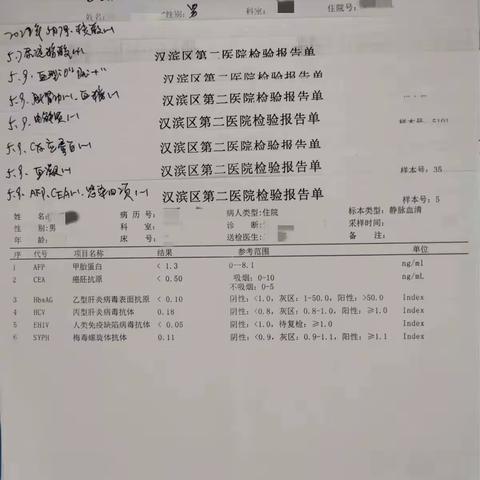 姓名 性别: 男 科室: 住院号:
汉滨区第二医院检验报告单
5.9.
汉滨区第二医院检验报告单
5.9.
汉滨区第二医院检验报告单
5.9. 样本号:
汉滨区第二医院检验报告单
5.9. C反应蛋白(-)
汉滨区第二医院检验报告单 样本号: 35
5.9. 血凝(-)
汉滨区第二医院检验报告单 样本号: 5
5.9. AFP.CEA(-).
姓 名: 病 历 号: 病人类型:住院 标本类型: 静脉血清
性 别:男 科 室: 诊 断: 采样时间:
年 龄: 床 号: 送检医生: 备 注:
序 代号 项目名称 结果 参考范围 单位
1 AFP 甲胎蛋白 < 1.3 0--8.1 ng/ml
2 CEA 癌胚抗原 < 0.50 吸烟: 0-10 ng/mL
不吸烟: 0-5
3 HbsAG 乙型肝炎病毒表面抗原 < 0.10 阴性: <1.0, 灰区: 1-50.0, 阳性: >50.0 Index
4 HCV 丙型肝炎病毒抗体 0.18 阴性: <0.8, 灰区: 0.8-1.0, 阳性: ≥1.0 Index
5 EHIV 人类免疫缺陷病毒抗体 < 0.05 阴性: <1.0, 待复检: ≥1.0 Index
6 SYPH 梅毒螺旋体抗体 0.11 阴性: <0.9, 灰区: 0.9-1.1, 阳性: ≥1.1 Index